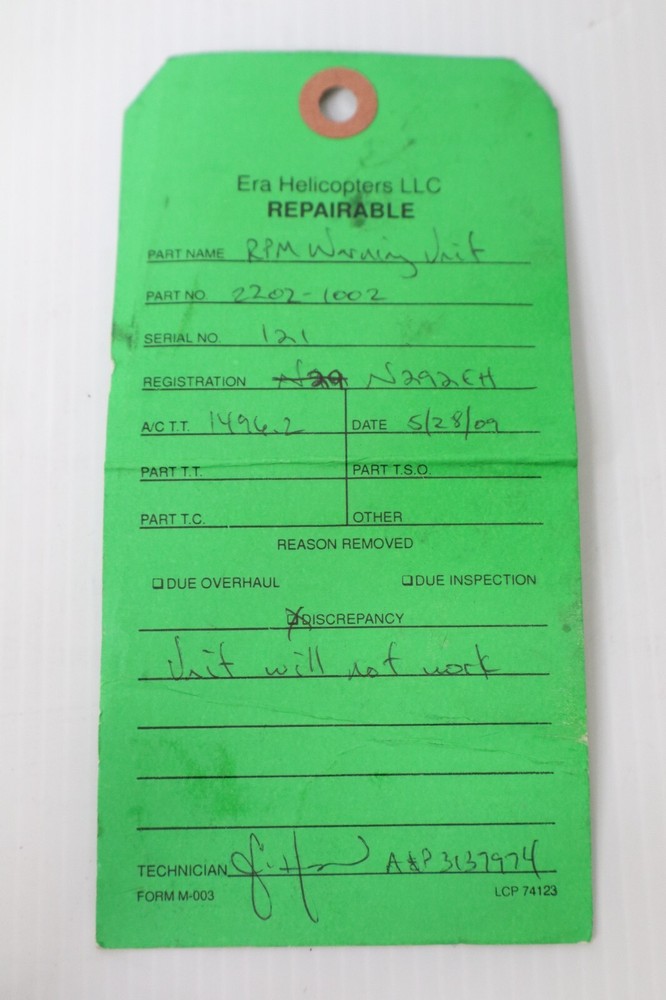 Era Helicopters LLC
REPAIRABLE
PART NAME RPM Warning Unit
PART NO. 2202-1002
SERIAL NO. 121
REGISTRATION N29 N292EH
A/C T.T. 1496.2 DATE 5/28/09
PART T.T. PART T.S.O.
PART T.C. OTHER
REASON REMOVED
DUE OVERHAUL DUE INSPECTION
DISCREPANCY
Unit will not work
TECHNICIAN A&P 3137974
FORM M-003 LCP 74123